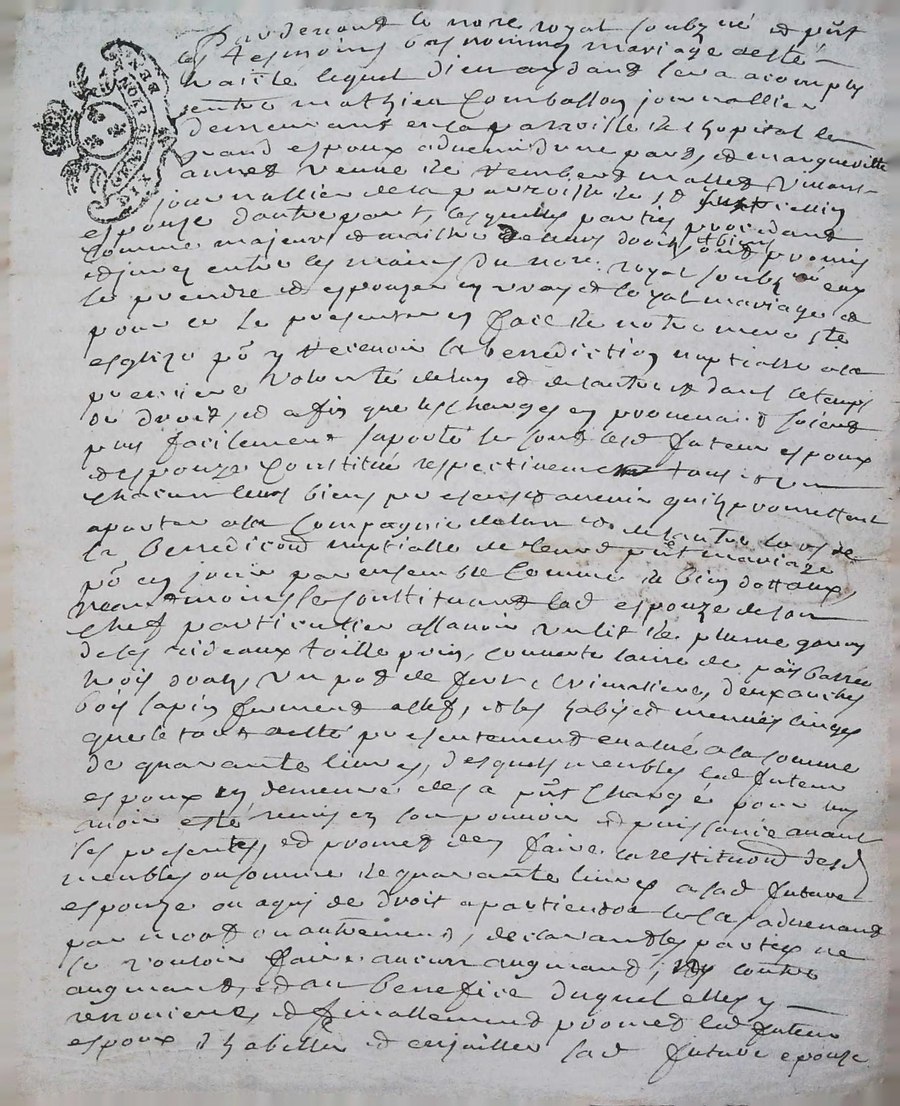 Pardevant le nore royal soubzné et pñt
les Tesmoins bas nommes mariage a esté
traitté lequel Dieu aydant sera acomply
entre mathieu Combasson journallier
demeurant en la parroisse de Lhopital le
grand espoux advenir d'une part, et margueritte
annet veuve de mallet vivant
journallier de la parroisse de
espouze d'autre part, lesquelles parties procedant
comme majeurs et maitres de leurs droits et biens ont promis
et juré entre les mains du nore royal soubzné eux
se prendre et espouzer en vray et loyal mariage et
pour ce se presenter en face de notre mere ste
esglize po y recevoir la benediction nuptialle a la
premiere volonté de lun et de lautre et dans le temps
de droit, et afin que les charges en provenant soient
plus facilement suporté se sont lesd futeur espoux
et espouze Constitué respectivement tous et un
chacun leurs biens presens et avenir quils promettent
aporter a la Compagnie de lun et de lautre lors de
la Benediction nuptialle de leurd pñt mariage
po en jouir par ensemble comme de bien dottaux,
neantmoins se constituant lad espouze de son
chef particulier assavoir un lit de plume garny
de ses rideaux toille peint, couverte laine de païs barré
trois draps, un pot de fert, Crimaliere, deux arches
bois sapin fermant a clef, et ses habis et menues linges
que le tout a esté presentement evalué a la somme
de quarante livres, desquels meubles led futeur
espoux en demeure des a pñt Chargé pour les
avoir esté remis en son pouvoir et puissance avant
les presentes, et promet den faire la restitution desd
meubles ou somme de quarante livres a lad future
espouze ou a qui de droit apartiendra le cas advenant
par mort ou autrement, declarant les parties ne
se vouloir faire aucun augmant, ny contre
augmant, et au benefice duquel elles y
renoncient, et finallement promet led futeur
espoux d'habiller et enjailler lad future epouze